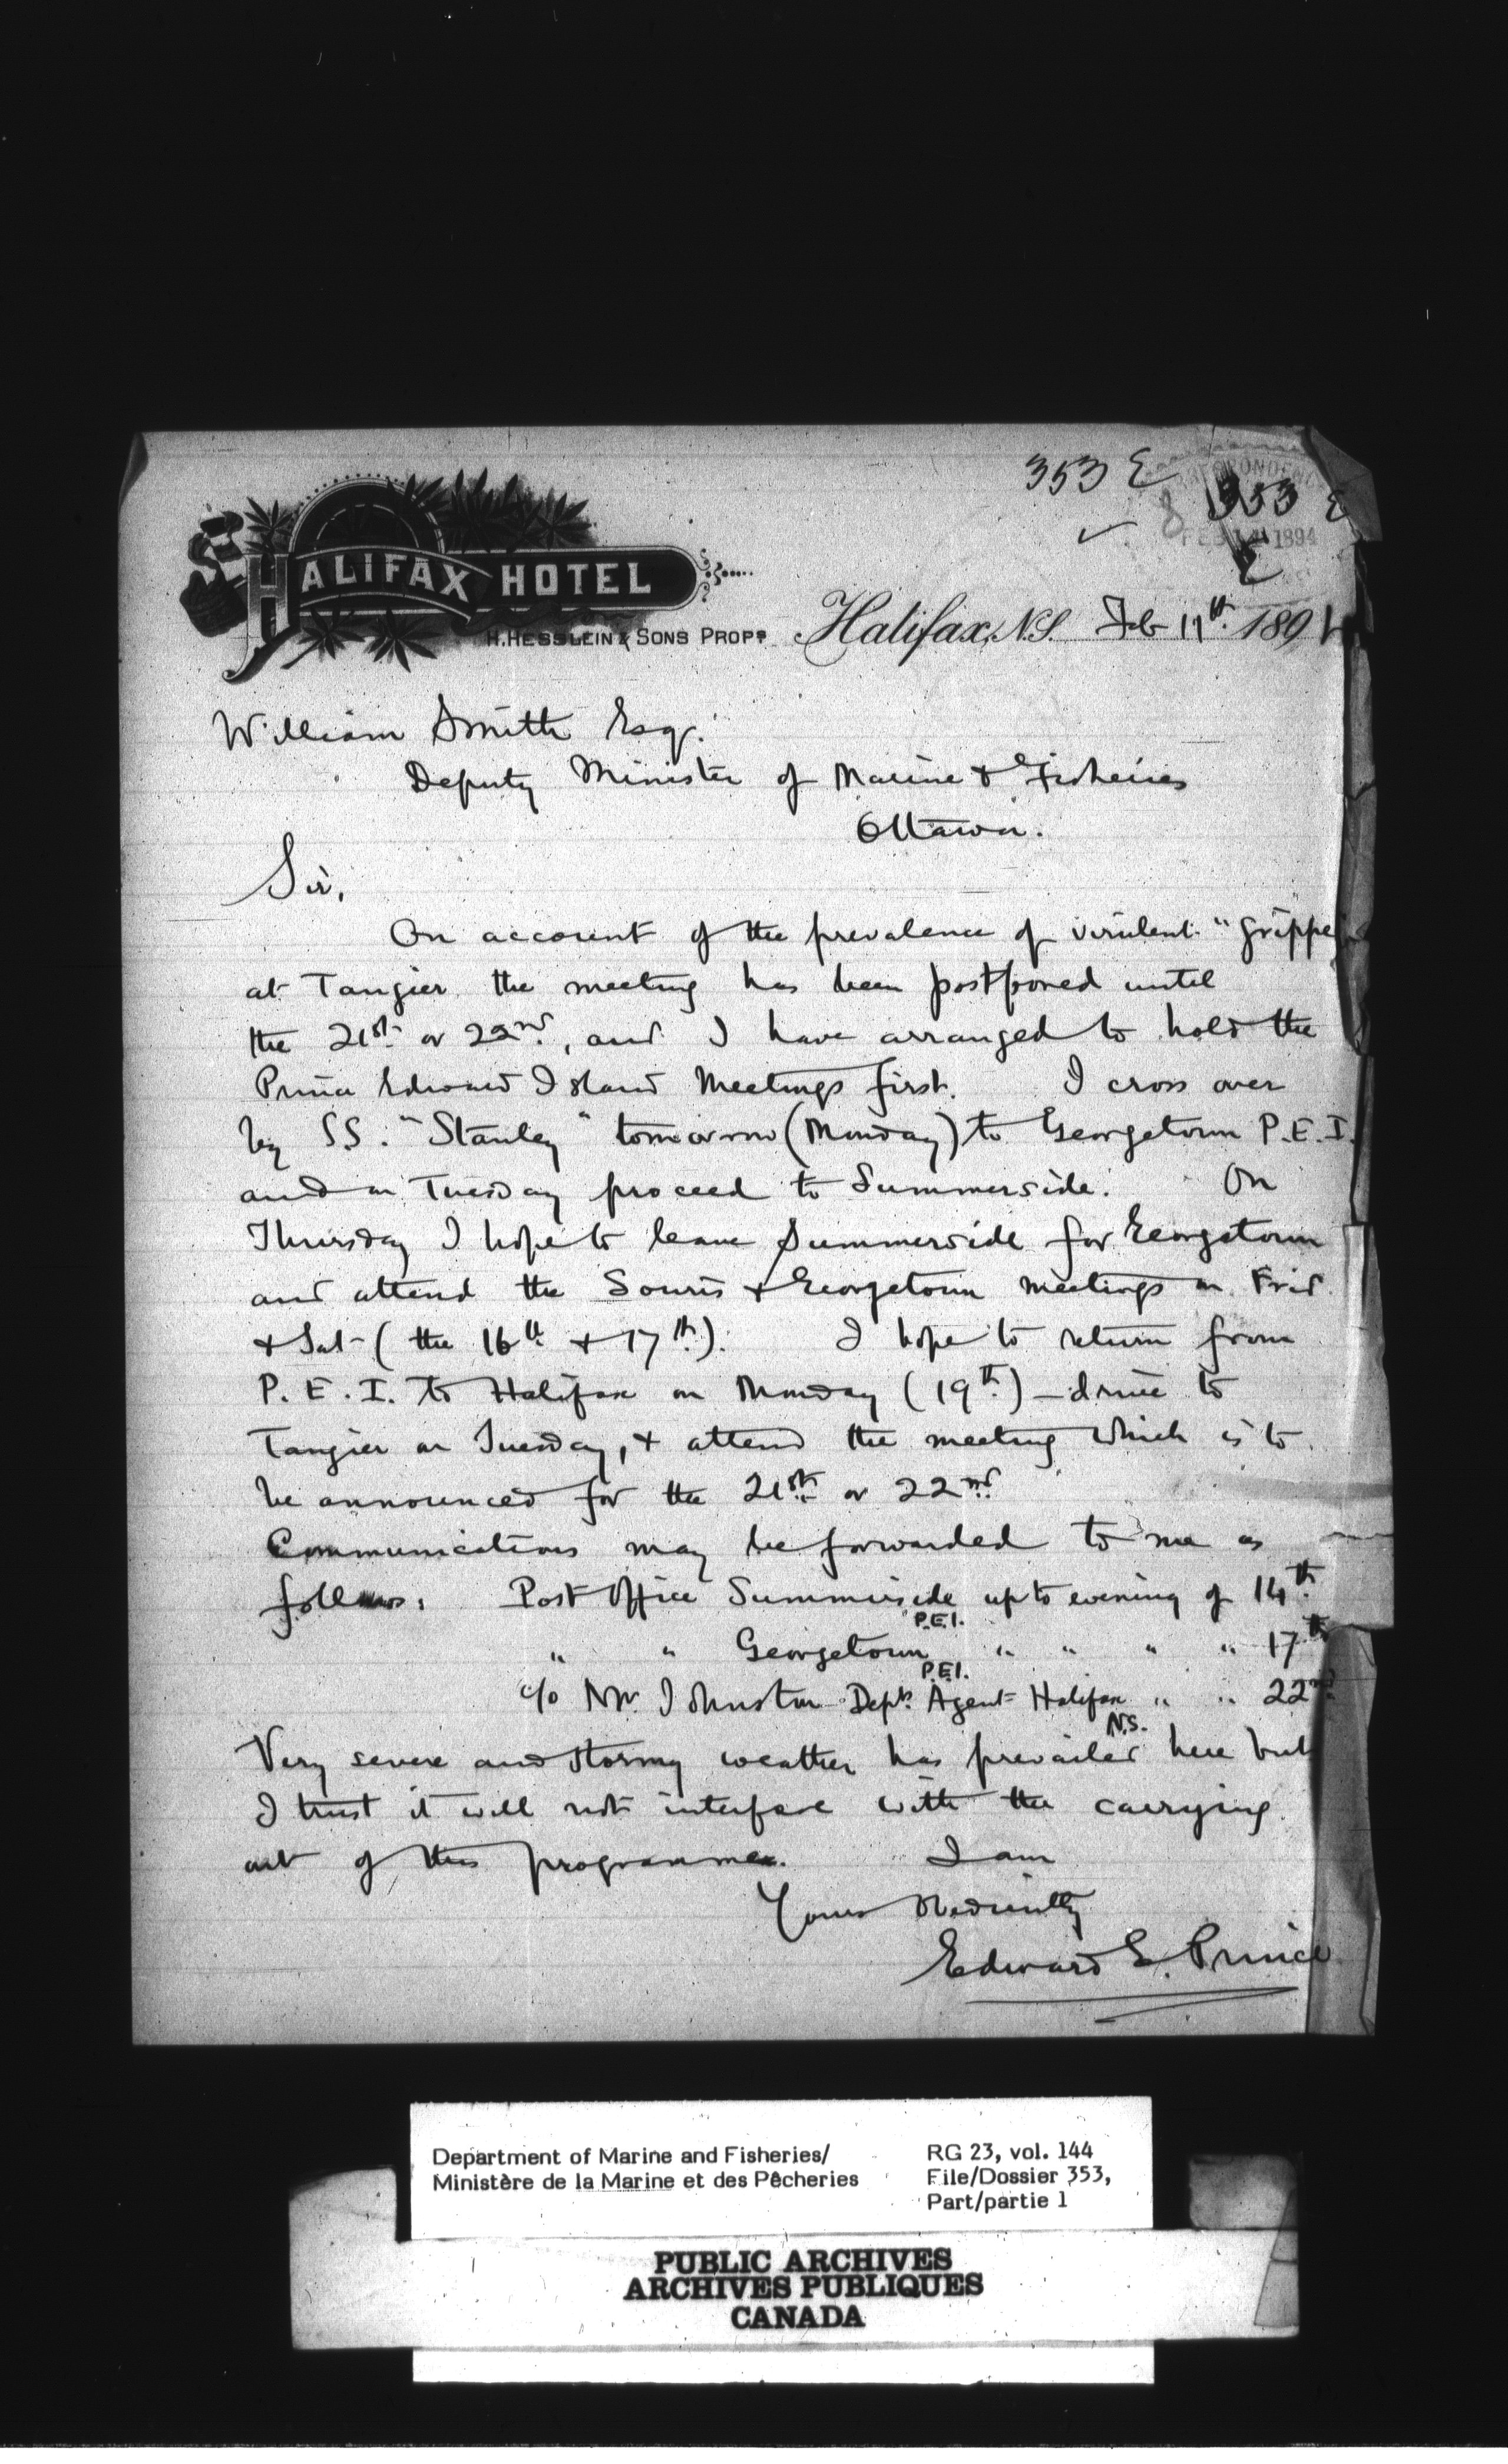 353 E
CORRESPONDENCE
8 353 E
FEB 14 1894
E
HALIFAX HOTEL
H. HESSLEIN & SONS PROPS
Halifax, N.S. Feb 11th 1894
William Smith Esq.
Deputy Minister of Marine & Fisheries
Ottawa.
Sir,
On account of the prevalence of virulent "grippe"
at Tangier the meeting has been postponed until
the 21st or 22nd, and I have arranged to hold the
Prince Edward Island Meetings first. I cross over
by S.S. "Stanley" tomorrow (Monday) to Georgetown P.E.I.
and on Tuesday proceed to Summerside. On
Thursday I hope to leave Summerside for Georgetown
and attend the Souris & Georgetown meetings on Frid.
& Sat (the 16th & 17th). I hope to return from
P.E.I. to Halifax on Monday (19th) – drive to
Tangier on Tuesday, & attend the meeting which is to
be announced for the 21st or 22nd
Communications may be forwarded to me as
follows: Post Office Summerside up to evening of 14th.
P.E.I.
" " Georgetown " " " " 17th
P.E.I.
c/o Mr Johnston Dept. Agent Halifax " " 22nd
N.S.
Very severe and stormy weather has prevailed here but
I trust it will not interfere with the carrying
out of this programme. I am
Yours obediently
Edward E. Prince
Department of Marine and Fisheries/
Ministère de la Marine et des Pêcheries
RG 23, vol. 144
File/Dossier 353,
Part/partie 1
PUBLIC ARCHIVES
ARCHIVES PUBLIQUES
CANADA